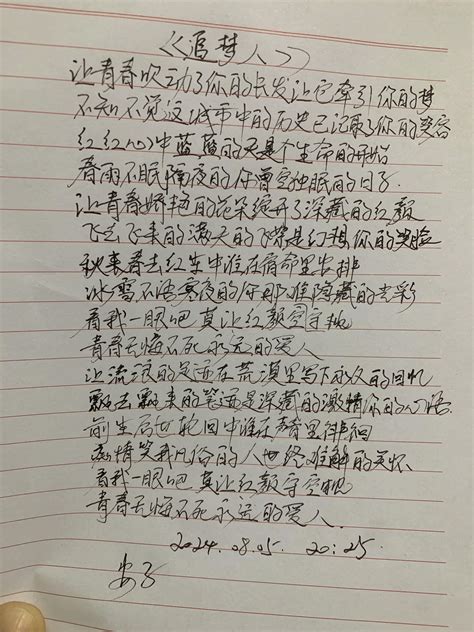 《追梦人》
让青春吹动了你的长发让它牵引你的梦
不知不觉这城市中的历史已记取了你的笑容
红红心中蓝蓝的天是个生命的开始
春雨不眠隔夜的你曾空独眠的日子.
让青春娇艳的花朵绽开了深藏的红颜
飞去飞来的满天的飞絮是幻想你的笑脸
秋来春去红尘中谁在宿命里安排
冰雪不语寒夜的你那难隐藏的光彩
看我一眼吧莫让红颜空守
青春无悔不死永远的爱人
让流浪的足迹在荒漠里写下永久的回忆
飘去飘来的笔迹是深藏的激情你的心语.
前生后世轮回中谁在声里徘徊
痴情笑我凡俗的人世终难解的关怀
看我一眼吧莫让红颜守空
青春无悔不死永远的爱人.
2024.08.05. 20:25.